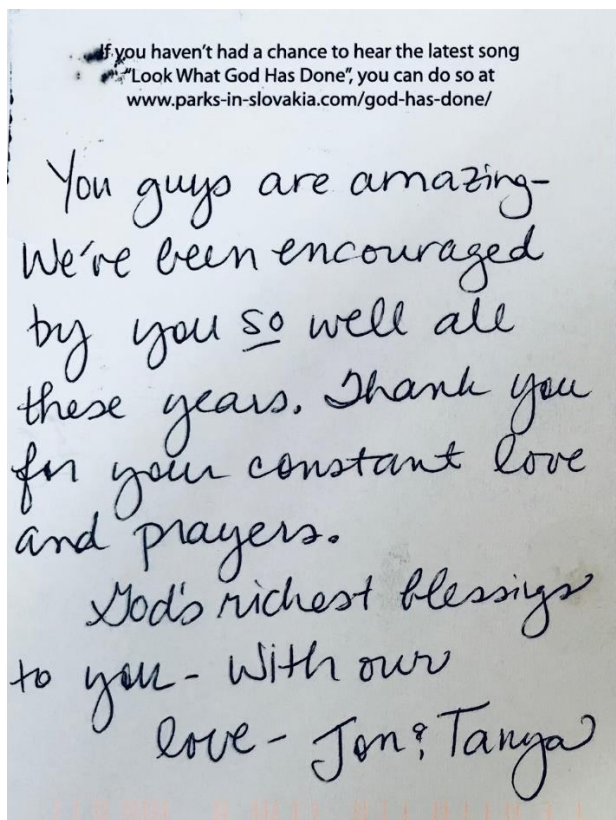 If you haven't had a chance to hear the latest song
"Look What God Has Done", you can do so at
www.parks-in-slovakia.com/god-has-done/
You guys are amazing-
We've been encouraged
by you so well all
these years. Thank you
for your constant love
and prayers.
God's richest blessigs
to you - With our
love - Jon & Tanya